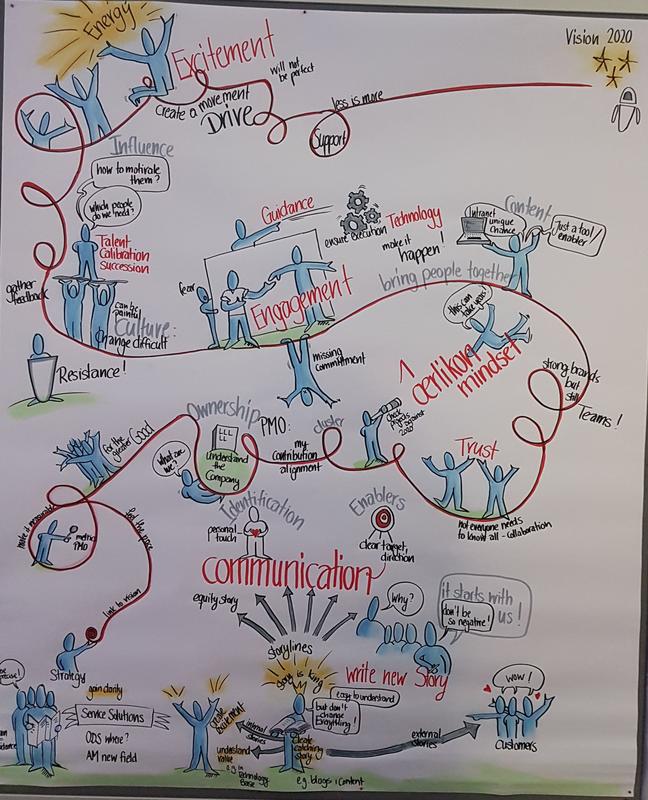 Energy
Excitement
will not
be perfect
Vision 2020
create a movement
Drive
less is more
Support
Influence
how to motivate
them?
which people
do we need?
Talent
Calibration
Succession
gather
feedback
can be
painful
Culture:
change difficult
Resistance!
Guidance
ensure execution
Technology
make it
happen!
Content
Intranet
unique
chance
Just a tool/
enabler
bring people together
fear
Engagement
missing
commitment
this can
take years!
1 oerlikon
mindset
strong brands
but
still
Teams!
Ownership
PMO:
cluster
my
contribution
alignment
check
projects
against
2020
for the
greater Good
what are
we?
understand
the
Company
Trust
not everyone needs
to know all - collaboration
Identification
personal
touch
Enablers
clear target,
direction
make it measurable
metric
PMO
feel the pace
link to vision
Strategy
communication
equity story
storylines
why?
it starts with
us!
don't be
so negative!
write new Story
gain clarity
Service Solutions
ODS where?
AM new field
story is king
easy to understand
but don't
change
everything!
internal
stories
understand
value
e.g. in
Technology
Base
create
catching
story
e.g. blogs, content
external
stories
wow!
Customers